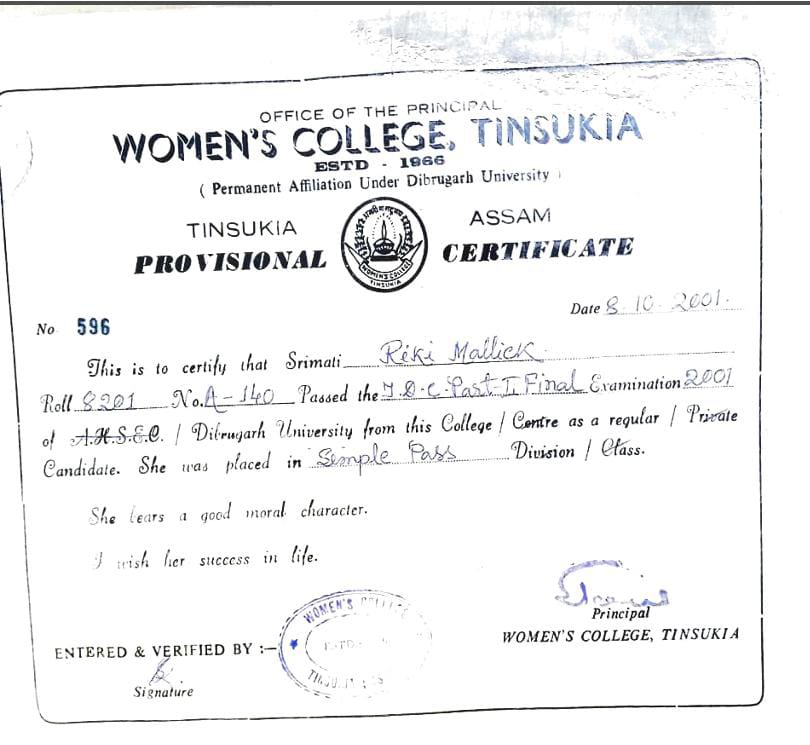 OFFICE OF THE PRINCIPAL
WOMEN'S COLLEGE, TINSUKIA
ESTD - 1966
( Permanent Affiliation Under Dibrugarh University )
TINSUKIA ASSAM
PROVISIONAL CERTIFICATE
WOMEN'S COLLEGE
TINSUKIA
Date 8-10-2001.
No 596
This is to certify that Srimati Reki Mallick
Roll 8201 No. A-140 Passed the T.D.C Part-II Final Examination 2001
of A.H.S.E.C. / Dibrugarh University from this College / Centre as a regular / Private
Candidate. She was placed in Semple Pass Division / Class.
She bears a good moral character.
I wish her success in life.
Principal
WOMEN'S COLLEGE, TINSUKIA
WOMEN'S COLLEGE
ESTD
ENTERED & VERIFIED BY :—
Signature